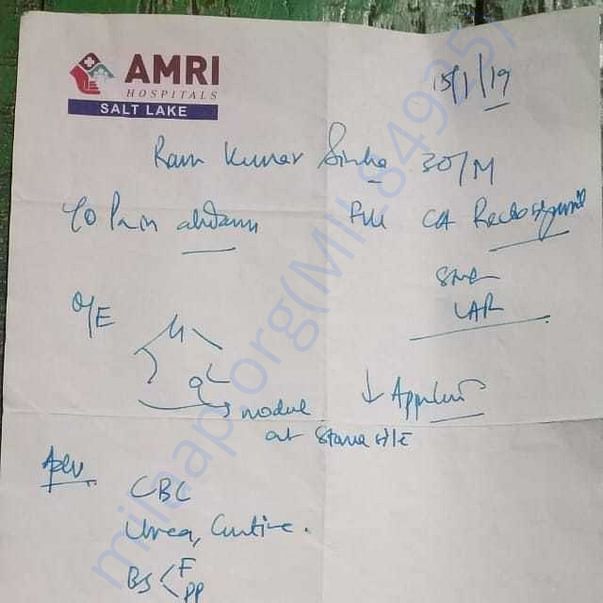 AMRI
HOSPITALS
SALT LAKE
15/1/19
Ram Kumar Sinha 30/M
c/o Pain abdomn
F/U CA Rectosigmoid
LAR
O/E
↓ Appetite
nodule
at Stoma site
Adv
CBC
Urea, Creatinine.
BS < F
PP
milaap.org(MIL84925)